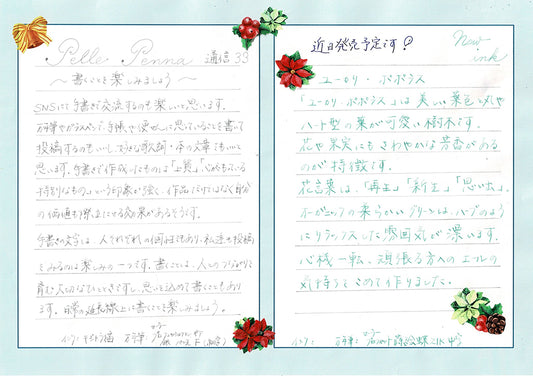 Pelle Penna 通信 33
〜書くことを楽しみましょう〜
SNSにて手書きで交流するのも楽しいと思います。
万年筆やガラスペンで手帳や便せんに思っていることを書いて
投稿するのもいいし、好きな歌詞・本の文章でもいいと
思います。手書きで作成したものは「上質」「心がこもっている
特別なもの」という印象が強く、作品だけではなく自分
の価値も
効果があるそうです。
手書きの文字は、人それぞれの個性であり、私達も投稿
をみるのは楽しみの一つです。書くことは、人とのつながりを
育む大切なひとときですし、思いを込めて書くこともあり
ます。日常の延長線上に書くことを楽しみましょう。
インク:
万年筆:
近日発売予定です!
New
ink
ユーカリ・ポポラス
「ユーカリ・ポポラス」は美しい葉色と丸や
ハート型の葉が可愛い樹木です。
花や果実にもさわやかな芳香がある
のが特徴です。
花言葉は、「再生」「新生」「思い出」。
の柔らかいグリーンは、ハーブのよう
にリラックスした雰囲気が漂います。
心機一転、頑張る方へのエールの
気持ちをこめて作りました。
インク:
万年筆: